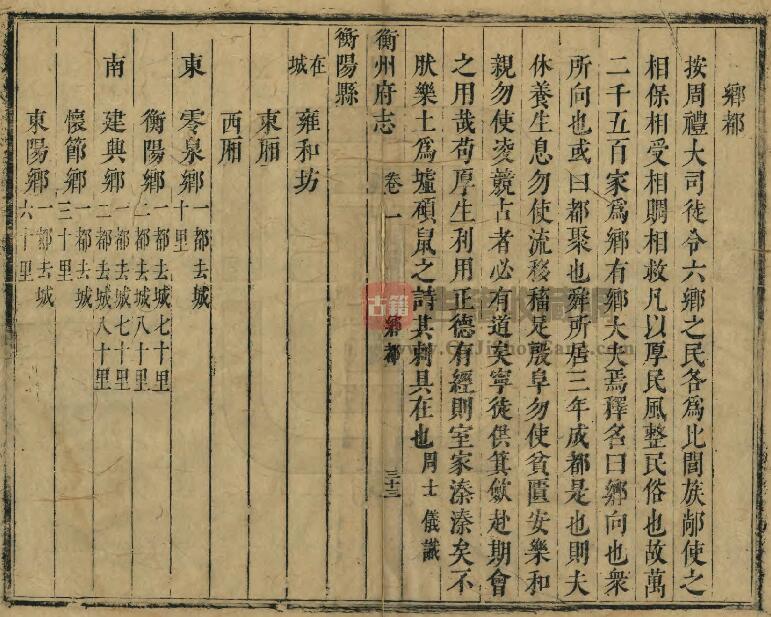 鄉都
按周禮大司徒令六鄉之民各爲比閭族鄰使之
相保相受相賙相救凡以厚民風整民俗也故萬
二千五百家爲鄉有鄉大夫焉釋名曰鄉向也衆
所向也或曰都聚也舜所居三年成都是也則夫
休養生息勿使流移穡足殷阜勿使貧匱安樂和
親勿使凌競占者必有道矣寧徒供箕斂赴期會
之用哉苟厚生利用正德有經則室家溱溱矣不
肰樂土爲墟碩鼠之詩其刺具在也 周士儀識
衡州府志 卷一 鄉都 三十三
衡陽縣
在城 雍和坊
東厢
西厢
東 零泉鄉 一都去城十里
衡陽鄉 一都去城七十里 二都去城八十里
南 建興鄉 一都去城七十里 二都去城八十里
懷節鄉 一都去城三十里
東陽鄉 一都去城六十里
古籍